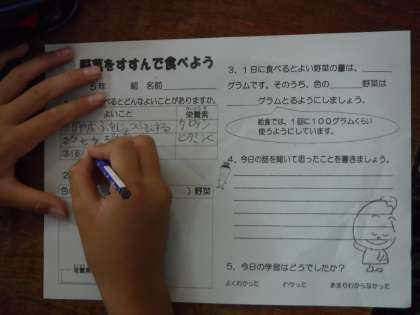 野菜をすすんで食べよう
5年 組 名前
べるとどんなよいことがありますか。
よいこと 栄養素
カロテン
ビタミンC
2
色の
野菜
栄養素
3、1日に食べるとよい野菜の量は、
グラムです。そのうち、色の 野菜は
グラムとるようにしましょう。
給食では、1回に100グラムくらい
使うようにしています。
4、今日の話を聞いて思ったことを書きましょう。
5、今日の学習はどうでしたか?
よくわかった わかった あまりわからなかった